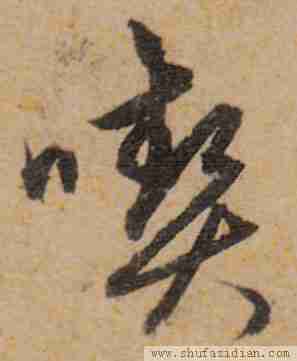 喫
www.shufazidian.com